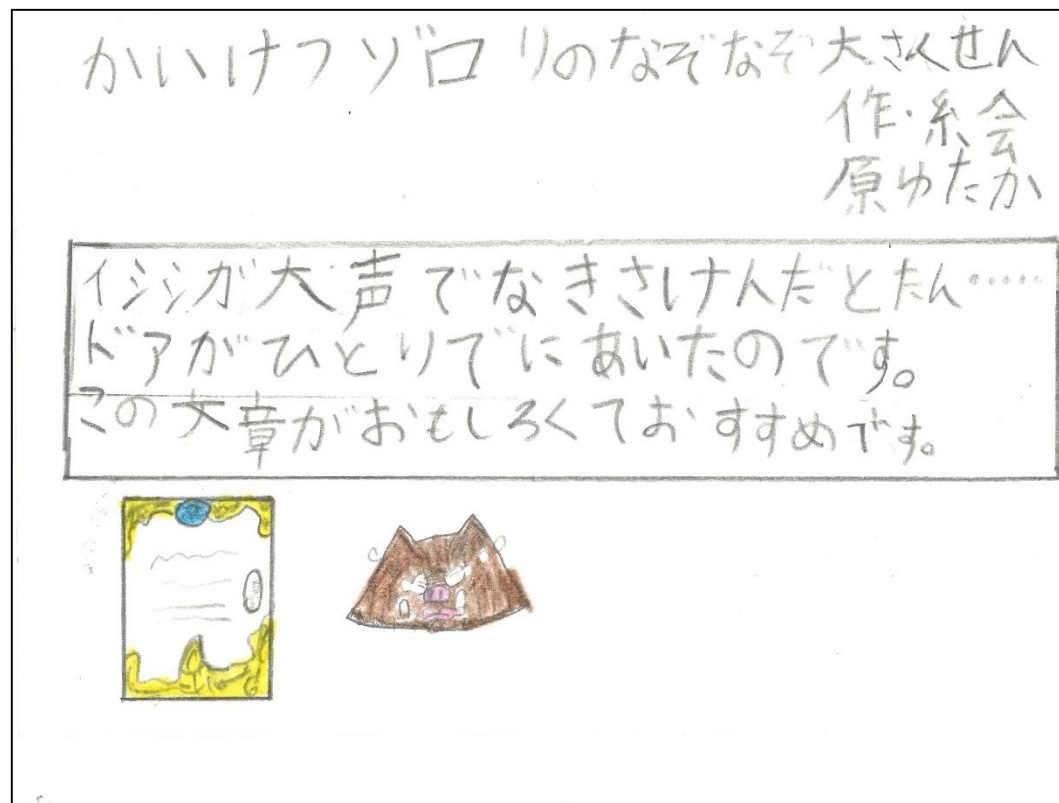 かいけつゾロリのなぞなぞ大さくせん
作・絵
原ゆたか
イシシが大声でなきさけんだとたん……
ドアがひとりでにあいたのです。
この文章がおもしろくておすすめです。